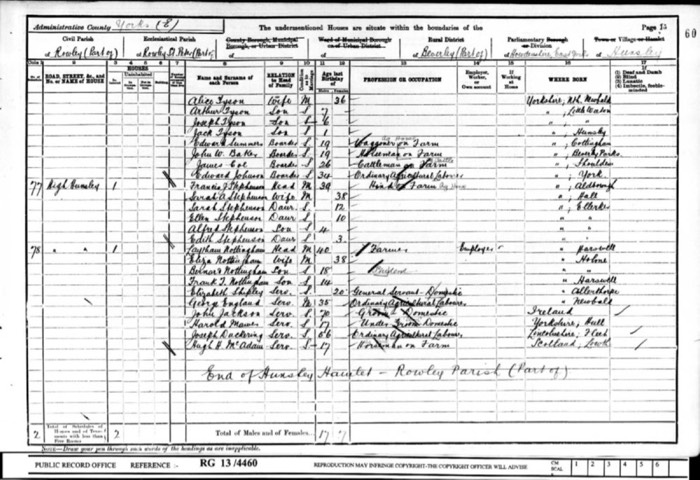 Administrative County Yorks (E) The undermentioned Houses are situate within the boundaries of the Page 13
60
Civil Parish Ecclesiastical Parish County Borough, Municipal Borough, or Urban District Ward of Municipal Borough or of Urban District Rural District Parliamentary Borough or Division Town or Village or Hamlet
of Rowley (Part of) of Rowley St Peter (Part of) of of of Beverley (Part of) of Howdenshire, East Yorks of Hunsley
ROAD, STREET, &c., and No. or NAME of HOUSE HOUSES Name and Surname of each Person RELATION to Head of Family Age last Birthday of PROFESSION OR OCCUPATION Employer, Worker, or Own account If Working at Home WHERE BORN If (1) Deaf and Dumb (2) Blind (3) Lunatic (4) Imbecile, feeble-minded
Alice Tyson Wife M 36 Yorkshire, Nth. Newbald
Arthur Tyson Son S 7 " Little Weton
Joseph Tyson Son S 6 " "
Jack Tyson Son S 1 " Hunsley
Edward Sumners Boarder S 19 Waggoner on Farm " Cottingham
John W. Baker Boarder S 19 Horseman on Farm " Beverley Parks
James Coe Boarder S 26 Cattleman on Farm " Skeulden
Edward Johnson Boarder S 34 Ordinary Agricultural Laborer " York
77 High Hunsley 1 Francis J Stephenson Head M 39 Hind on Farm " Aldborough
Sarah A Stephenson Wife M 38 " Hull
Sarah Stephenson Daur. S 12 " Ellerker
Ellen Stephenson Daur S 10 " "
Alfred Stephenson Son S 4 " "
Edith Stephenson Daur S 3 " "
78 " " 1 Laytham Nottingham Head M 40 Farmer Employer " Harswell
Eliza Nottingham Wife M 38 " Holme
Bernard Nottingham Son S 18 " "
Frank T. Nottingham Son S 14 " Harswell
Elizabeth Shipley Serv. S 20 General Servant - Domestic " Allerthorpe
George England Serv. M 35 Ordinary Agricultural Laborer " Newbald
John Jackson Serv. S 70 Groom - Domestic Ireland
Harold Mawer Serv. S 17 Under Groom Domestic Yorkshire, Hull
Joseph Duckering Serv. S 66 Ordinary Agricultural Laborer Lincolnshire, Fleet
Hugh H. McAdam Serv. S 17 Horseman on Farm Scotland, Louth
End of Hunsley Hamlet - Rowley Parish (Part of)
2 Total of Schedules of Houses and of Tenements with less than Five Rooms 2 Total of Males and of Females 17 7
NOTE.—Draw your pen through such words of the headings as are inapplicable.
PUBLIC RECORD OFFICE REFERENCE :- RG 13/4460 REPRODUCTION MAY INFRINGE COPYRIGHT-THE COPYRIGHT OFFICER WILL ADVISE CM SCALE 1 2 3 4 5 6